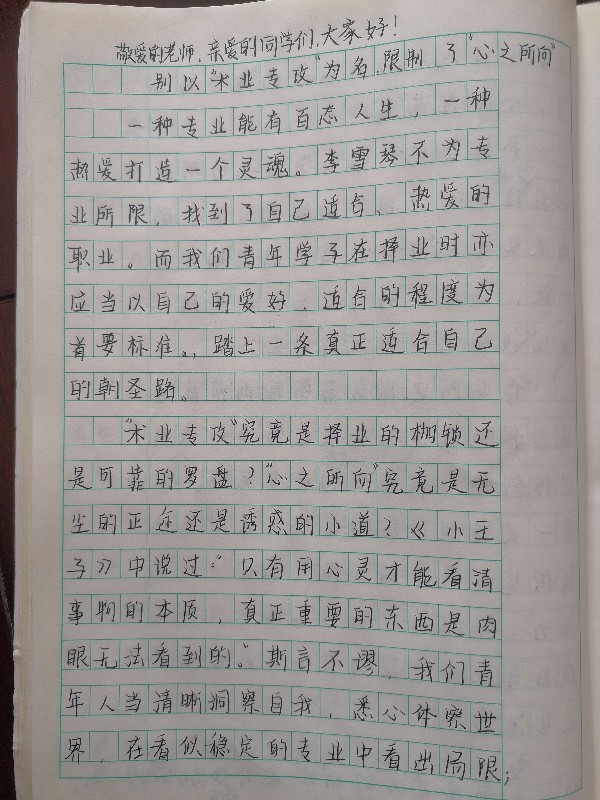 敬爱的老师，亲爱的同学们，大家好！
别以"术业专攻"为名，限制了"心之所向"
一种专业能有百态人生，一种
热爱打造一个灵魂。李雪琴不为专
业所限，找到了自己适合、热爱的
职业。而我们青年学子在择业时亦
应当以自己的爱好，适合的程度为
首要标准。，踏上一条真正适合自己
的朝圣路。
"术业专攻"究竟是择业的枷锁还
是可靠的罗盘？"心之所向"究竟是无
尘的正途还是诱惑的小道？《小王
子》中说过："只有用心灵才能看清
事物的本质，真正重要的东西是肉
眼无法看到的。"斯言不谬，我们青
年人当清晰洞察自我，悉心体察世
界，在看似稳定的专业中看出局限；